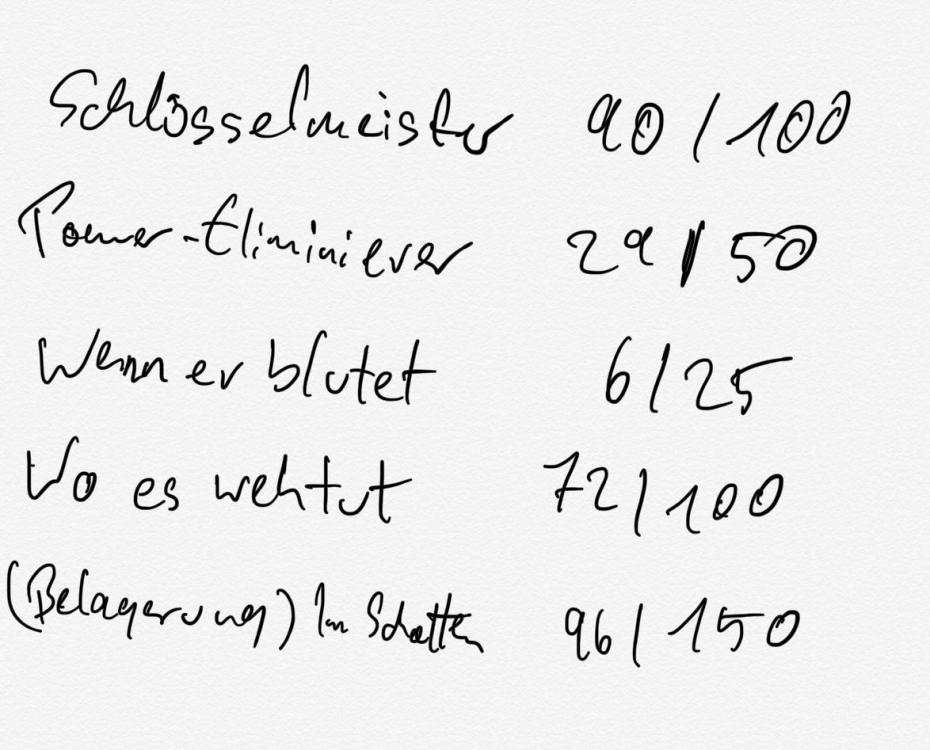 Schlösselmeister 90/100
Power-Eliminierer 29/50
Wenn er blutet 6/25
Wo es wehtut 72/100
(Belagerung) Im Schatten 96/150